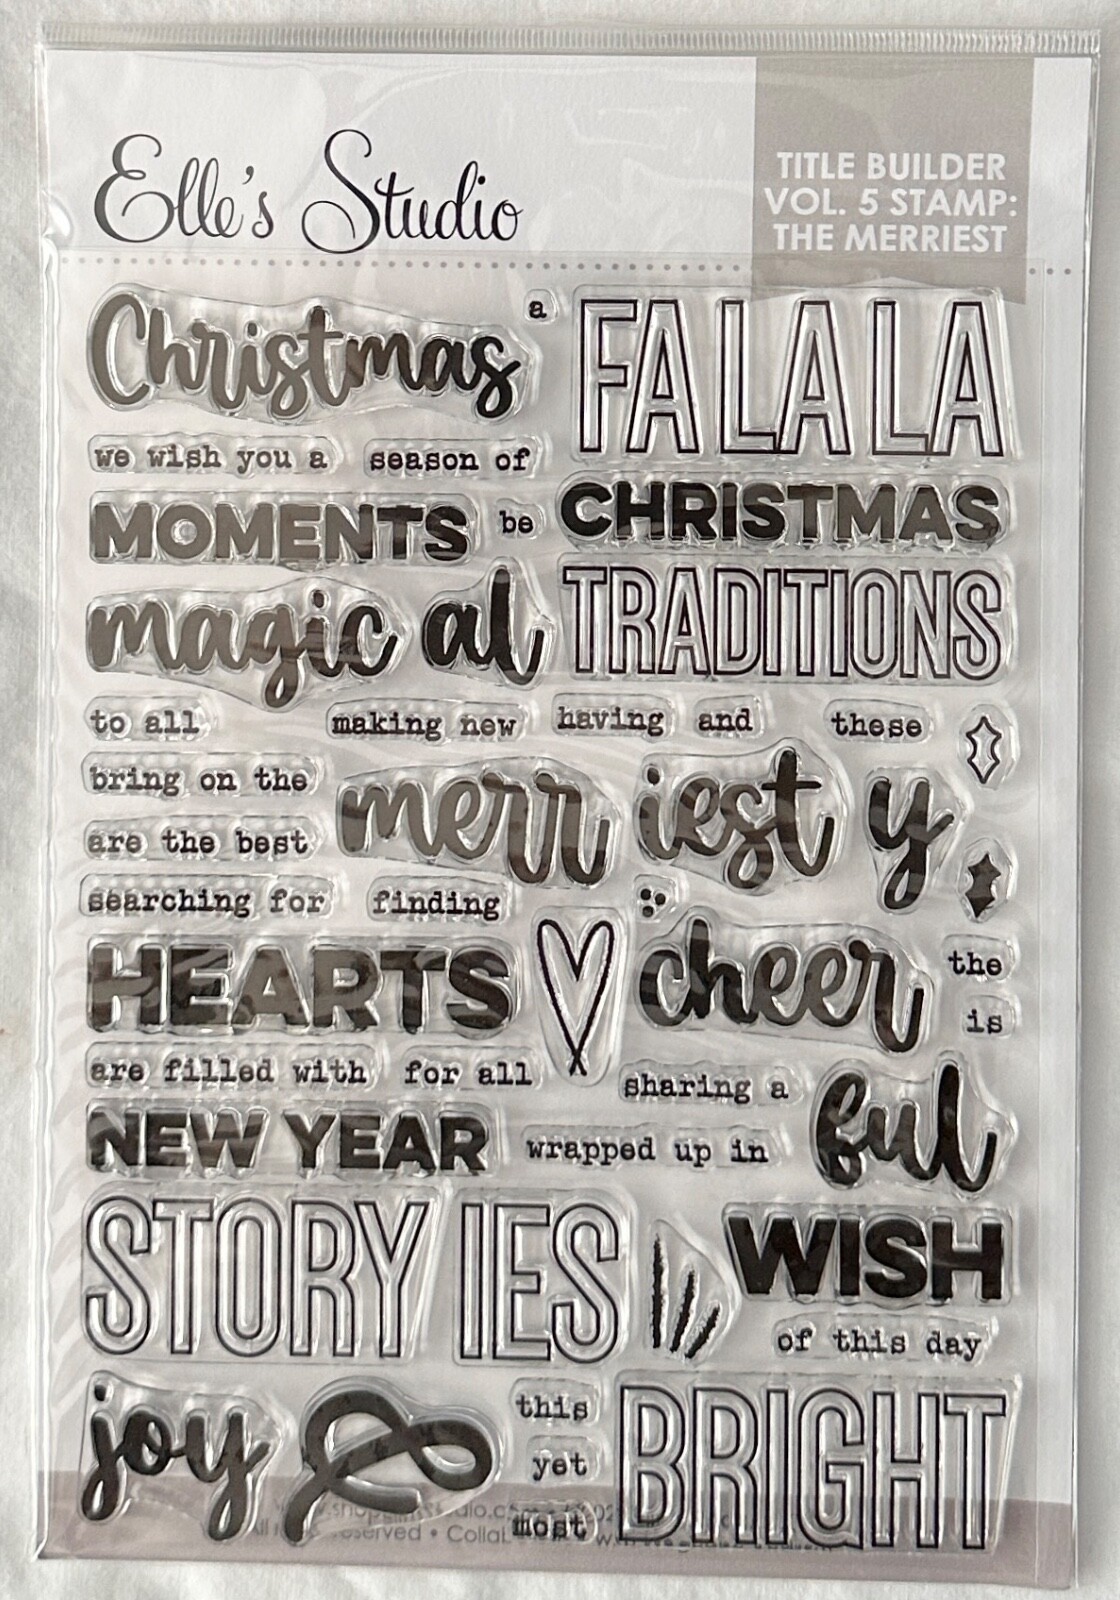 Elle's Studio
TITLE BUILDER
VOL. 5 STAMP:
THE MERRIEST
Christmas
a
FA LA LA
we wish you a
season of
MOMENTS
be
CHRISTMAS
magic al
TRADITIONS
to all
making new
having
and
these
bring on the
merr iest y
are the best
searching for
finding
HEARTS
cheer
the
is
are filled with
for all
sharing a
ful
NEW YEAR
wrapped up in
STORY IES
WISH
of this day
joy
this
yet
most
BRIGHT